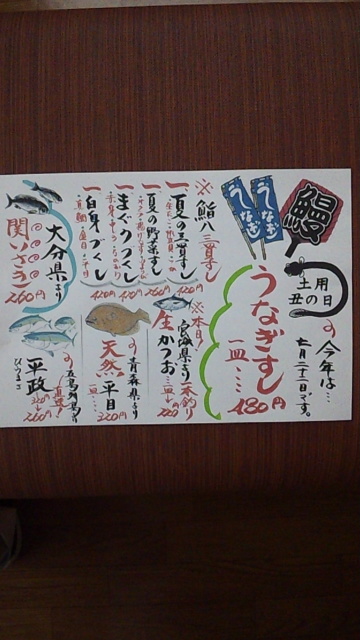 鰻
うなぎ
うなぎ
土用
丑の日
今年は…
七月二十一日です。
うなぎすし
一皿…180円
※鮨八三貫すし
一夏の三貫すし
420円
一夏の野菜すし
260円
一まぐろづくし
420円
一白身づくし
420円
※本日!
宮城県より一本釣り
生かつお…一皿220円
青森県より
天然平目
一皿…320円
大分県より
関いさき
260円
五島列島より
直送!
平政
ひらまさ
260円